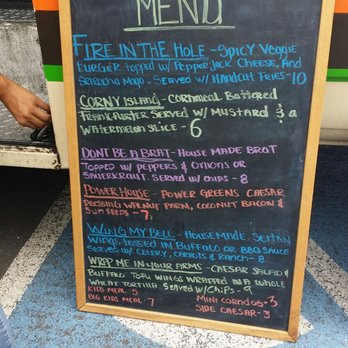 MENU
FIRE IN THE HOLE - SPICY VEGGIE
BURGER TOPPED W/ PEPPER JACK CHEESE, AND
SRIRACHA MAYO. SERVED W/ HANDCUT FRIES - 10
CORNY ISLAND - CORNMEAL BATTERED
FRANKFURTER SERVED W/ MUSTARD & A
WATERMELON SLICE - 6
DON'T BE A BRAT - HOUSE MADE BRAT
TOPPED W/ PEPPERS & ONIONS OR
SAUERKRAUT. SERVED W/ CHIPS - 8
POWER HOUSE - POWER GREENS CAESAR
DRESSING WALNUT PARM, COCONUT BACON &
SUN SEEDS - 7,
WING MY BELL - HOUSEMADE SEITAN
WINGS TOSSED IN BUFFALO OR BBQ SAUCE
SERVED W/ CELERY, CARROTS & RANCH - 8
WRAP ME IN YOUR ARMS - CAESAR SALAD &
BUFFALO TOFU WINGS WRAPPED IN A WHOLE
WHEAT TORTILLA SERVED W/ CHIPS - 9
KIDS MEAL - 5 MINI CORNDOG - 3
BIG KIDS MEAL - 7 SIDE CAESAR - 3